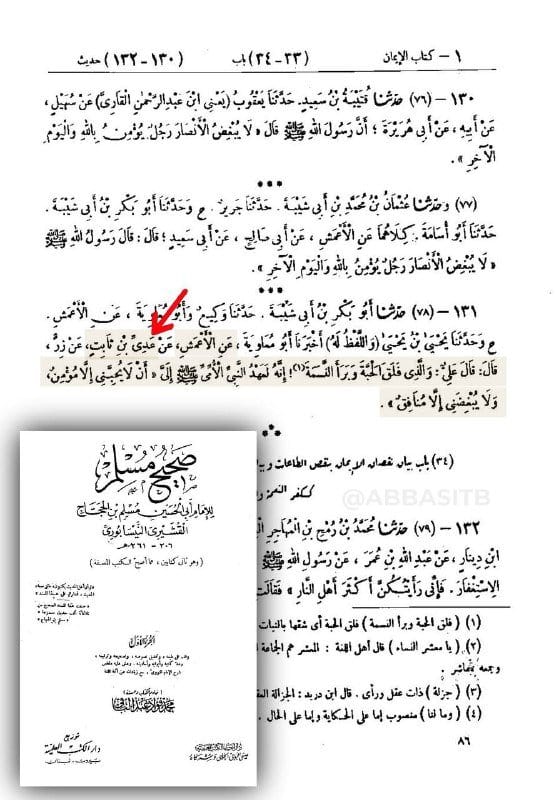 ١ – كتاب الإيمان
(٣٣-٣٤) باب
(١٣٠-١٣٢) حديث
١٣٠ – (٧٦) حَدَّثَنَا قُتَيْبَةُ بْنُ سَعِيدٍ. حَدَّثَنَا يَعْقُوبُ (يَعْنِي ابْنَ عَبْدِ الرَّحْمٰنِ الْقَارِيَّ) عَنْ سُهَيْلٍ،
عَنْ أَبِيهِ، عَنْ أَبِي هُرَيْرَةَ؛ أَنَّ رَسُولَ اللهِ ﷺ قَالَ « لَا يُبْغِضُ الْأَنْصَارَ رَجُلٌ يُؤْمِنُ بِاللهِ وَالْيَوْمِ
الْآخِرِ ».
***
(٧٧) وَحَدَّثَنَا عُثْمَانُ بْنُ مُحَمَّدِ بْنِ أَبِي شَيْبَةَ. حَدَّثَنَا جَرِيرٌ. ح وَحَدَّثَنَا أَبُو بَكْرِ بْنُ أَبِي شَيْبَةَ.
حَدَّثَنَا أَبُو أُسَامَةَ. كِلَاهُمَا عَنِ الْأَعْمَشِ، عَنْ أَبِي صَالِحٍ، عَنْ أَبِي سَعِيدٍ؛ قَالَ: قَالَ رَسُولُ اللهِ ﷺ
« لَا يُبْغِضُ الْأَنْصَارَ رَجُلٌ يُؤْمِنُ بِاللهِ وَالْيَوْمِ الْآخِرِ ».
***
١٣١ – (٧٨) حَدَّثَنَا أَبُو بَكْرِ بْنُ أَبِي شَيْبَةَ. حَدَّثَنَا وَكِيعٌ وَأَبُو مُعَاوِيَةَ، عَنِ الْأَعْمَشِ.
ح وَحَدَّثَنَا يَحْيَى بْنُ يَحْيَى (وَاللَّفْظُ لَهُ) أَخْبَرَنَا أَبُو مُعَاوِيَةَ، عَنِ الْأَعْمَشِ، عَنْ عَدِيِّ بْنِ ثَابِتٍ، عَنْ زِرٍّ،
قَالَ: قَالَ عَلِيٌّ: وَالَّذِي فَلَقَ الْحَبَّةَ وَبَرَأَ النَّسَمَةَ(١)! إِنَّهُ لَعَهْدُ النَّبِيِّ الْأُمِّيِّ ﷺ إِلَيَّ « أَنْ لَا يُحِبَّنِي إِلَّا مُؤْمِنٌ،
وَلَا يُبْغِضَنِي إِلَّا مُنَافِقٌ ».
(٣٤) باب بيان نقصان الإيمان بنقص الطاعات
ككفر النعمة
@ABBASITB
١٣٢ – (٧٩) حَدَّثَنَا مُحَمَّدُ بْنُ رُمْحِ بْنِ الْمُهَاجِرِ
ابْنِ دِينَارٍ، عَنْ عَبْدِ اللهِ بْنِ عُمَرَ، عَنْ رَسُولِ اللهِ ﷺ
الِاسْتِغْفَارَ. فَإِنِّي رَأَيْتُكُنَّ أَكْثَرَ أَهْلِ النَّارِ » فَقَالَتِ
(١) ( فلق الحبة وبرأ النسمة ) فلق الحبة أى شقها بالنبات
(٢) ( يا معشر النساء ) قال أهل اللغة : المعشر هم الجماعة
وجمعه معاشر .
(٣) ( جزلة ) ذات عقل ورأى . قال ابن دريد : الجزالة
(٤) ( وما لنا ) منصوب إما على الحكاية وإما على الحال .
٨٦
صحيح مسلم
للإمام أبي الحسين مسلم بن الحجاج
القشيري النيسابوري
٢٠٦ - ٢٦١ هـ
الجزء الأول
محمد فؤاد عبد الباقي
توزيع
دار الكتب العلمية
بيروت - لبنان